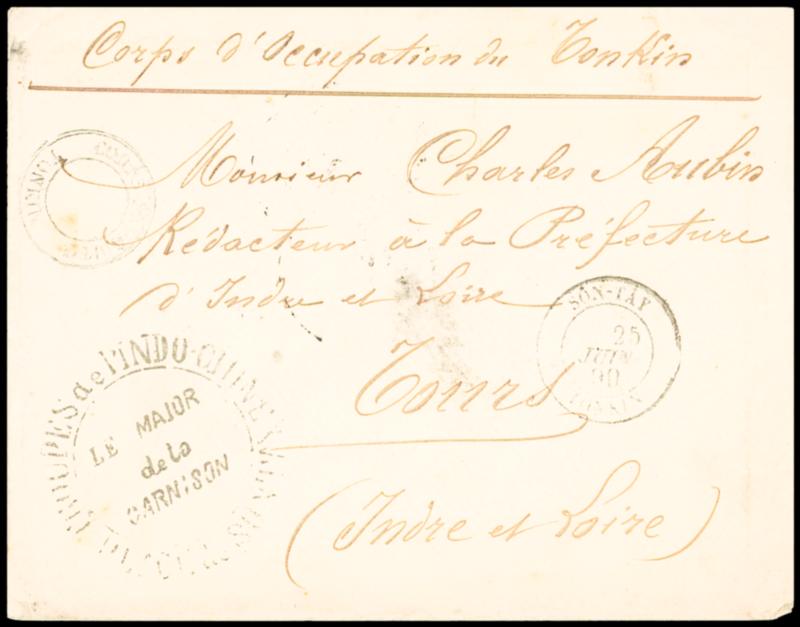 Corps d'Occupation du Tonkin
Monsieur Charles Aubin
Rédacteur à la Préfecture
d'Indre et Loire
Tours
(Indre et Loire)
SON-TAY
25
JUIN
90
TONKIN
TROUPES de l'INDO-CHINE
LE MAJOR
de la
GARNISON